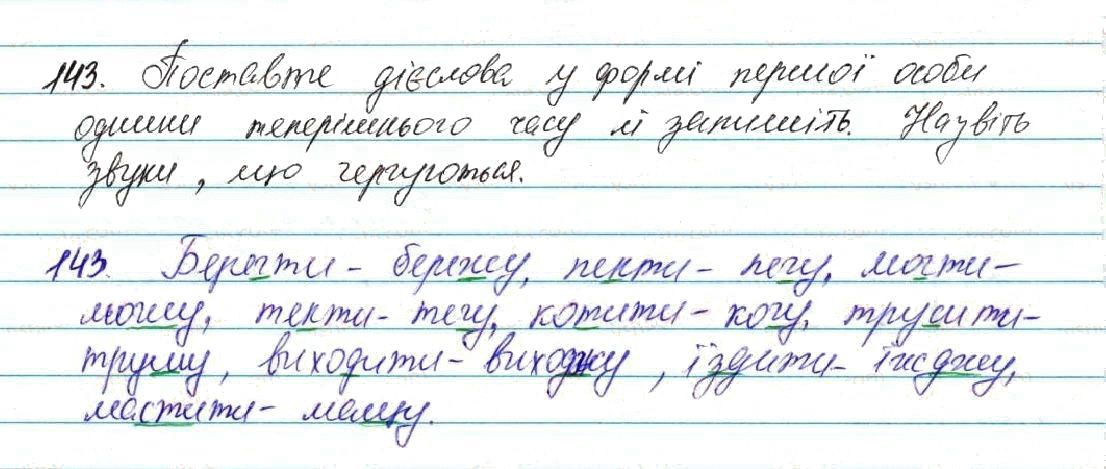 143. Поставте дієслова у формі першої особи
однини теперішнього часу й запишіть. Назвіть
звуки, що чергуються.
143. Берегти - бережу, пекти - печу, могти -
можу, текти - течу, котити - кочу, трусити -
трушу, виходити - виходжу, їздити - їжджу,
мастити - мащу.